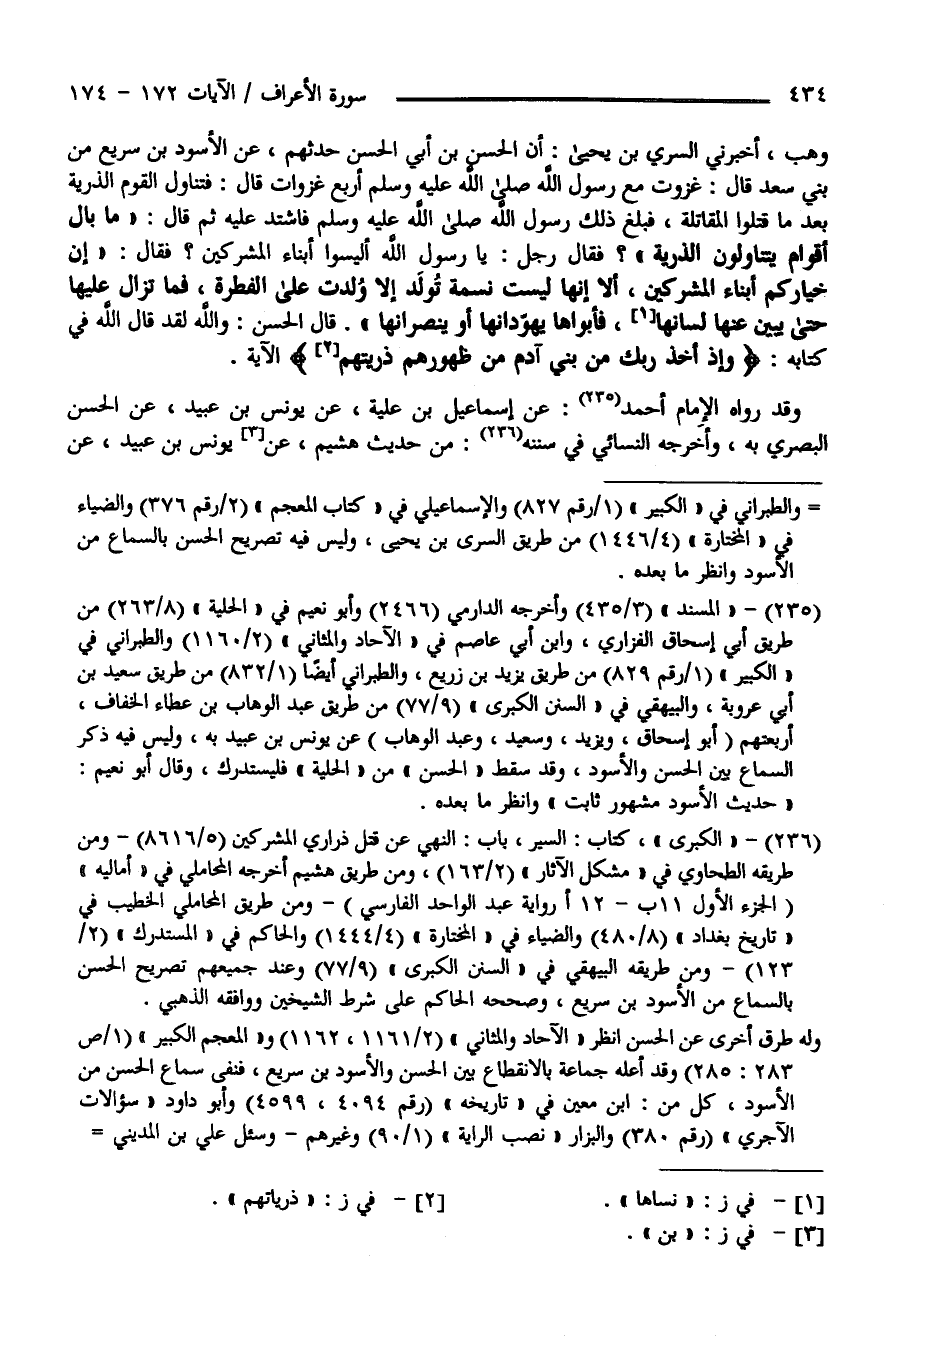 ٤٣٤ سورة الأعراف / الآيات ١٧٢ - ١٧٤
وهب ، أخبرني السري بن يحيىٰ : أن الحسن بن أبي الحسن حدثهم ، عن الأسود بن سريع من
بني سعد قال : غزوت مع رسول اللَّه صلىٰ اللَّه عليه وسلم أربع غزوات قال : فتناول القوم الذرية
بعد ما قتلوا المقاتلة ، فبلغ ذلك رسول اللَّه صلىٰ اللَّه عليه وسلم فاشتد عليه ثم قال : « ما بال
أقوام يتناولون الذرية » ؟ فقال رجل : يا رسول اللَّه أليسوا أبناء المشركين ؟ فقال : « إن
خياركم أبناء المشركين ، ألا إنها ليست نسمة تُولَد إلا وُلدت علىٰ الفطرة ، فما تزال عليها
حتىٰ يبين عنها لسانها[١] ، فأبواها يهوّدانها أو ينصرانها » . قال الحسن : واللَّه لقد قال اللَّه في
كتابه : ﴿ وإذ أخذ ربك من بني آدم من ظهورهم ذريتهم[٢] ﴾ الآية .
وقد رواه الإمام أحمد(٢٣٥) : عن إسماعيل بن علية ، عن يونس بن عبيد ، عن الحسن
البصري به ، وأخرجه النسائي في سننه(٢٣٦) : من حديث هشيم ، عن[٣] يونس بن عبيد ، عن
= والطبراني في « الكبير » (١/رقم ٨٢٧) والإسماعيلي في « كتاب المعجم » (٢/رقم ٣٧٦) والضياء
في « المختارة » (١٤٤٦/٤) من طريق السرى بن يحيى ، وليس فيه تصريح الحسن بالسماع من
الأسود وانظر ما بعده .
(٢٣٥) - « المسند » (٤٣٥/٣) وأخرجه الدارمي (٢٤٦٦) وأبو نعيم في « الحلية » (٢٦٣/٨) من
طريق أبي إسحاق الفزاري ، وابن أبي عاصم في « الآحاد والمثاني » (١١٦٠/٢) والطبراني في
« الكبير » (١/رقم ٨٢٩) من طريق يزيد بن زريع ، والطبراني أيضًا (٨٣٢/١) من طريق سعيد بن
أبي عروبة ، والبيهقي في « السنن الكبرى » (٧٧/٩) من طريق عبد الوهاب بن عطاء الخفاف ،
أربعتهم ( أبو إسحاق ، ويزيد ، وسعيد ، وعبد الوهاب ) عن يونس بن عبيد به ، وليس فيه ذكر
السماع بين الحسن والأسود ، وقد سقط « الحسن » من « الحلية » فليستدرك ، وقال أبو نعيم :
« حديث الأسود مشهور ثابت » وانظر ما بعده .
(٢٣٦) - « الكبرى » ، كتاب : السير ، باب : النهي عن قتل ذراري المشركين (٨٦١٦/٥) - ومن
طريقه الطحاوي في « مشكل الآثار » (١٦٣/٢) ، ومن طريق هشيم أخرجه المحاملي في « أماليه »
( الجزء الأول ١١ب - ١٢ أ رواية عبد الواحد الفارسي ) - ومن طريق المحاملي الخطيب في
« تاريخ بغداد » (٤٨٠/٨) والضياء في « المختارة » (١٤٤٤/٤) والحاكم في « المستدرك » (٢/
١٢٣) - ومن طريقه البيهقي في « السنن الكبرى » (٧٧/٩) وعند جميعهم تصريح الحسن
بالسماع من الأسود بن سريع ، وصححه الحاكم على شرط الشيخين ووافقه الذهبي .
وله طرق أخرى عن الحسن انظر « الآحاد والمثاني » (١١٦١/٢ ، ١١٦٢) و« المعجم الكبير » (١/ص
٢٨٣ : ٢٨٥) وقد أعله جماعة بالانقطاع بين الحسن والأسود بن سريع ، فنفى سماع الحسن من
الأسود ، كل من : ابن معين في « تاريخه » (رقم ٤٠٩٤ ، ٤٥٩٩) وأبو داود « سؤالات
الآجري » (رقم ٣٨٠) والبزار « نصب الراية » (٩٠/١) وغيرهم - وسئل علي بن المديني =
[١] - في ز : « نساها » . [٢] - في ز : « ذرياتهم » .
[٣] - في ز : « بن » .